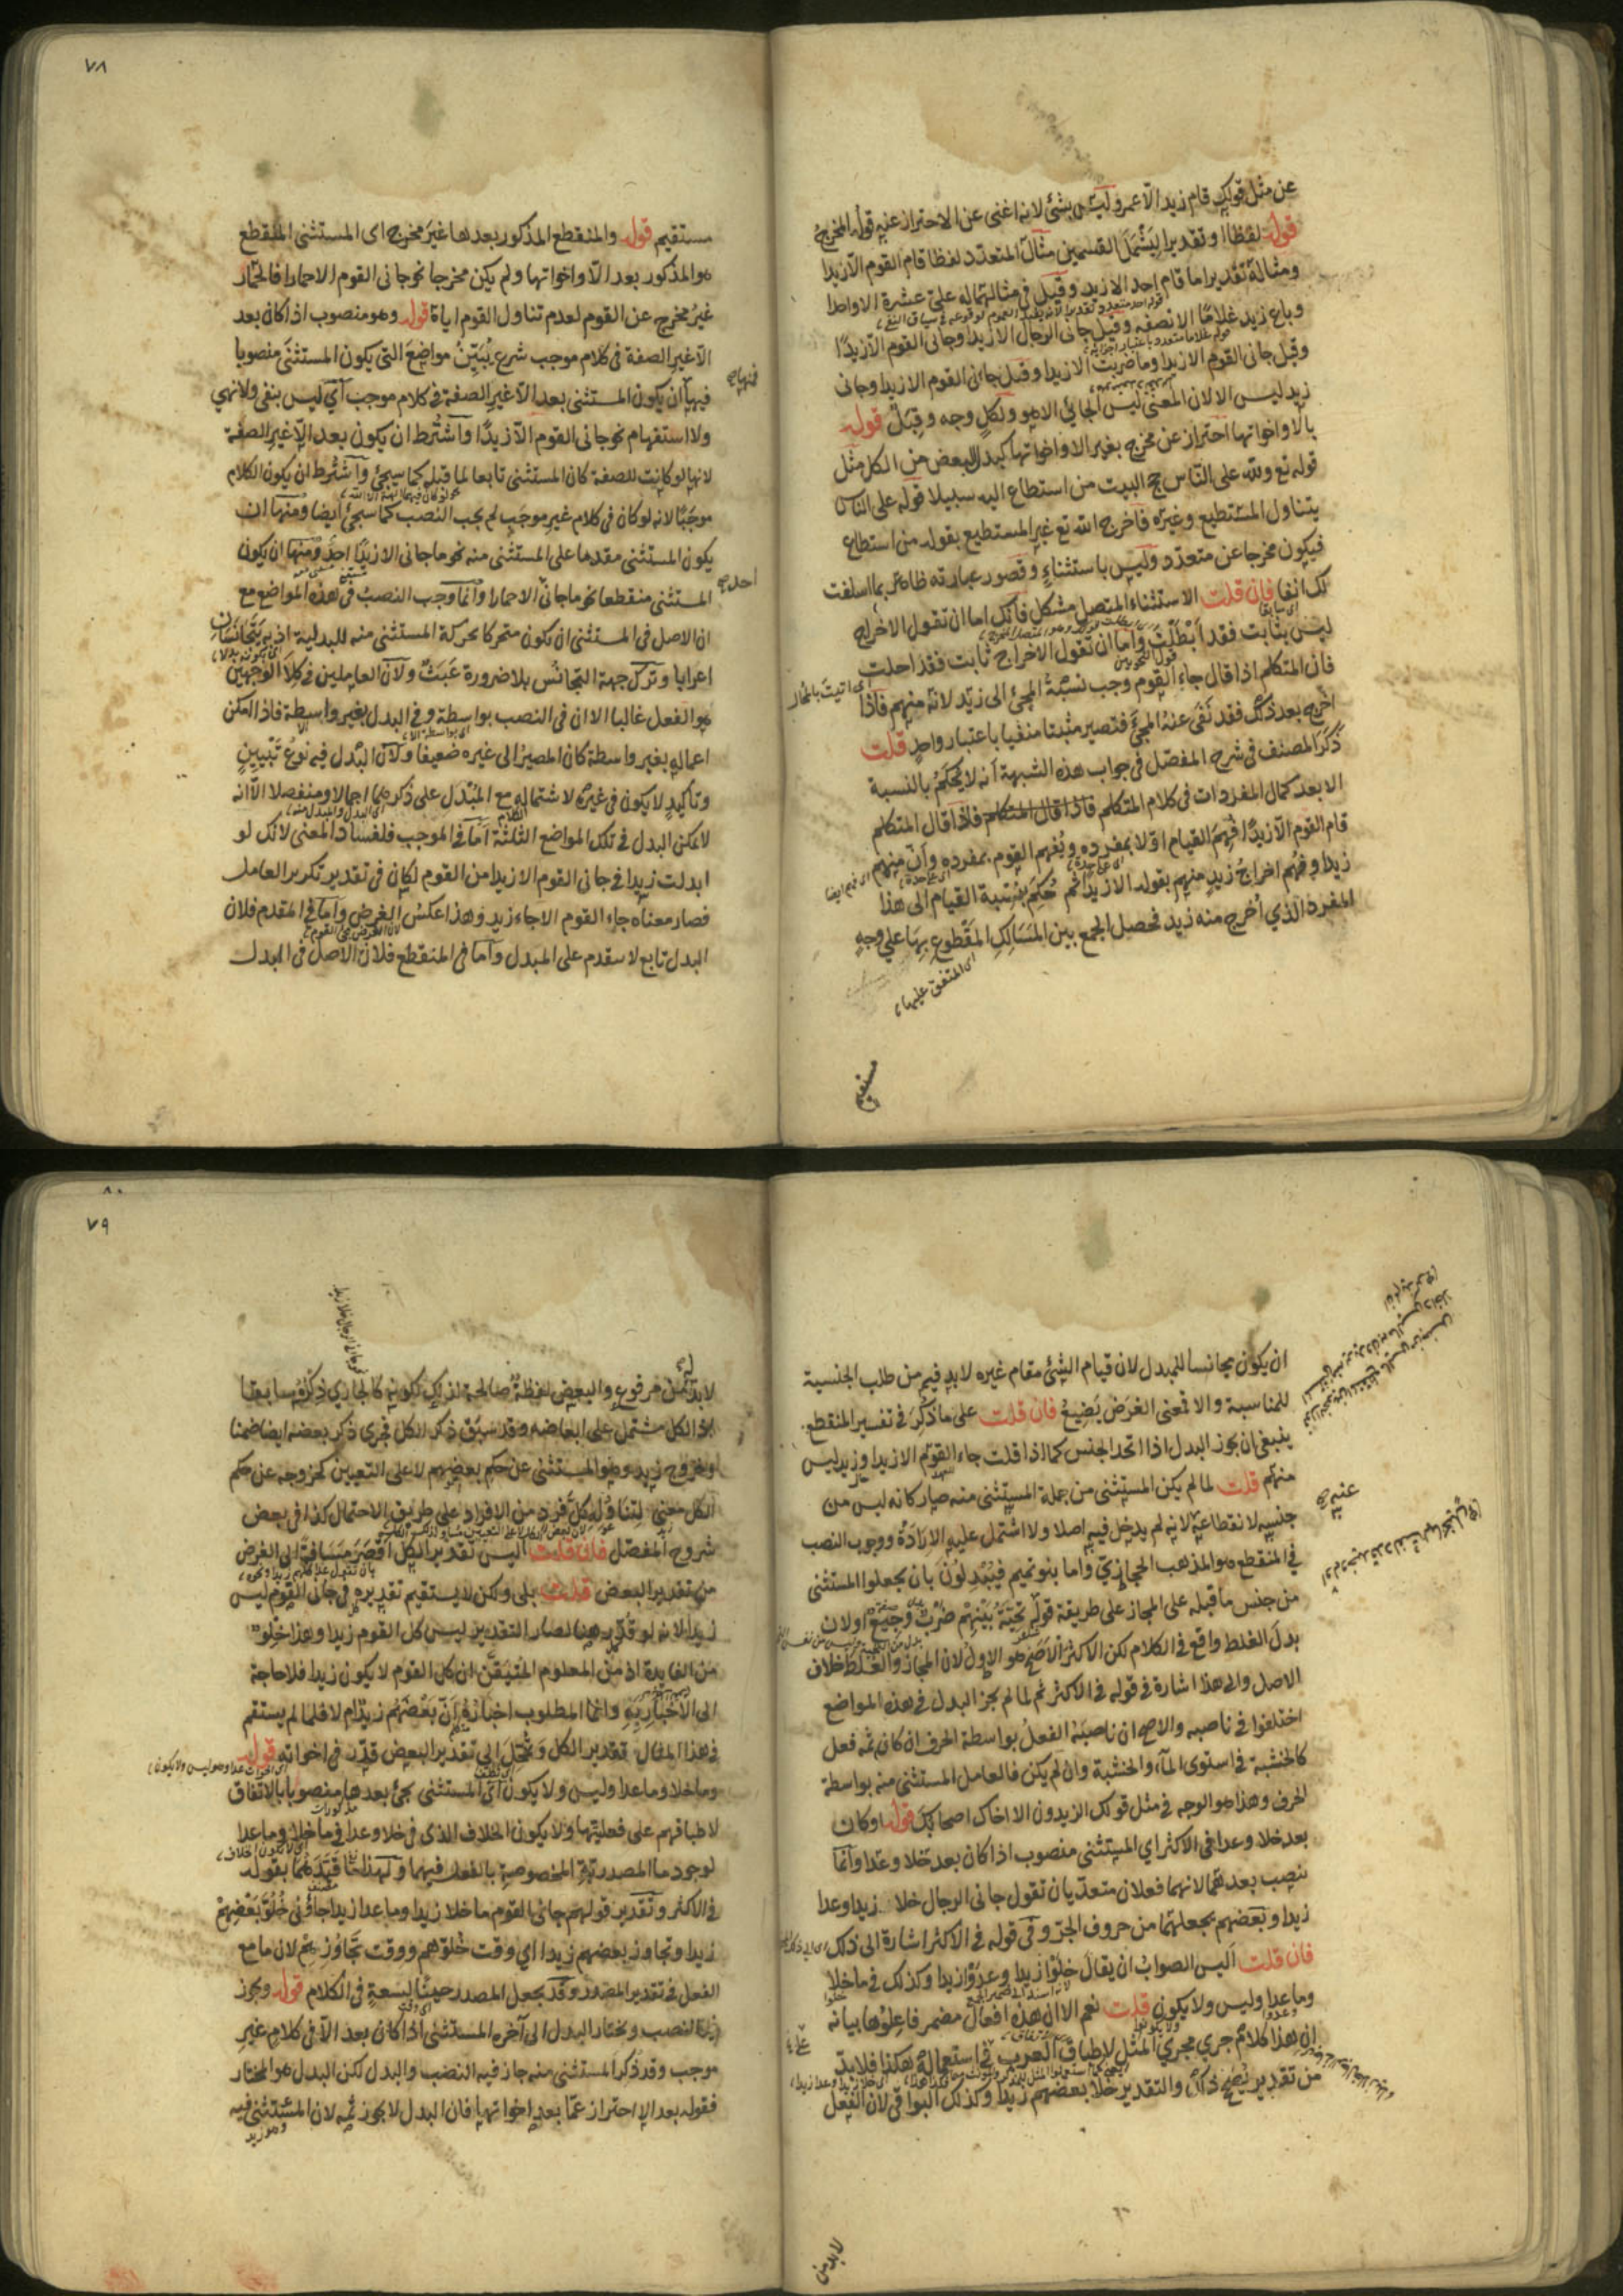 عن مثل قولك قام زيد الا عمرو ليس بشئ لانه اغنى عن الاحتراز عنه قوله المخرج
قوله لفظا او تقديرا ليشمل القسمين مثال المتعدد لفظا قام القوم الا زيدا
ومثاله تقديرا ما قام احد الا زيد وقيل في مثالهما له علي عشرة الا واحدا
وباع زيد غلاما الا نصفه وقيل جانى الرجال الا زيدا وجانى القوم الا زيدا
وقيل جانى القوم الا زيدا وما ضربت الا زيدا وقيل جانى القوم الا زيدا وجانى
زيد ليس الا لان المعنى ليس الجائي الا هو ولكل وجه وقبل قوله
بالا واخواتها احتراز عن مخرج بغير الا واخواتها كبدل البعض من الكل مثل
قوله تع ولله على الناس حج البيت من استطاع اليه سبيلا قوله على الناس
يتناول المستطيع وغيره فاخرج الله تع غير المستطيع بقوله من استطاع
فيكون مخرجا عن متعدد وليس باستثناء وقصور عبارته ظاهر بما اسلفت
لك انفا فان قلت الاستثناء المتصل مشكل فانك اما ان تقول الاخراج
ليس بثابت فقد ابطلت واما ان تقول الاخراج ثابت فقد احلت
اى اتيت بالمحال
فان المتكلم اذا قال جاء القوم وجب نسبة المجئ الى زيد لانه منهم فاذا
اخرج بعد ذلك فقد نفى عنه المجئ فتصير مثبتا منفيا باعتبار واحد قلت
ذكر المصنف فى شرح المفصل فى جواب هذه الشبهة انه لا يحكم بالنسبة
الا بعد كمال المفردات فى كلام المتكلم فاذا قال المتكلم فاذا قال المتكلم
قام القوم الا زيدا فهم القيام اولا بمفرده ويفهم القوم بمفرده وان منهم
زيدا وفهم اخراج زيد منهم بقوله الا زيدا ثم حكم بنسبة القيام الى هذا
المفرد الذي اخرج منه زيد فحصل الجمع بين المسالك المقطوع بها على وجه
اى المتفق عليها
مستقيم
٧٨
مستقيم قوله والمنقطع المذكور بعدها غير مخرج اى المستثنى المنقطع
هو المذكور بعد الا واخواتها ولم يكن مخرجا نحو جانى القوم الا حمارا فالحمار
غير مخرج عن القوم لعدم تناول القوم اياه قوله وهو منصوب اذا كان بعد
الا غير الصفة فى كلام موجب شرع يبين مواضع التى يكون المستثنى منصوبا
فيها ان يكون المستثنى بعد الا غير الصفة فى كلام موجب اى ليس بنفى ولا نهي
ولا استفهام نحو جانى القوم الا زيدا واشترط ان يكون بعد الا غير الصفة
لانها لو كانت للصفة كان المستثنى تابعا لما قبله كما سيجئ واشترط ان يكون الكلام
موجبا لانه لو كان فى كلام غير موجب لم يجب النصب كما سيجئ ايضا ومنها ان
يكون المستثنى مقدما على المستثنى منه نحو ما جانى الا زيدا احد ومنها ان يكون
المستثنى منقطعا نحو ما جانى الا حمارا وانما وجب النصب فى هذه المواضع مع
ان الاصل فى المستثنى ان تكون متحركا بحركة المستثنى منه للبدلية اذ به يتجانسان
اعرابا وترك جهة التجانس بلا ضرورة عبث ولان العاملين فى كلا الوجهين
هو الفعل غالبا الا ان فى النصب بواسطة وفى البدل بغير واسطة فاذا امكن
اعماله بغير واسطة كان المصير الى غيره ضعيفا ولان البدل فيه نوع تبيين
وتاكيد لا يكون فى غيره لاشتماله مع المبدل على ذكرهما اجمالا ومنفصلا الا انه
لا يمكن البدل فى تلك المواضع الثلثة اما فى الموجب فلفساد المعنى لانك لو
ابدلت زيدا فى جانى القوم الا زيدا من القوم لكان فى تقدير تكرير العامل
فصار معناه جاء القوم الا جاء زيد وهذا عكس الغرض واما فى المقدم فلان
البدل تابع لا يتقدم على المبدل واما فى المنقطع فلان الاصل فى البدل
ان يكون مجانسا للمبدل لان قيام الشئ مقام غيره لابد فيه من طلب الجنسية
للمناسبة والا فمعنى الغرض يضيع فان قلت على ما ذكر فى تفسير المنقطع
ينبغى ان يجوز البدل اذا اتحد الجنس كما اذا قلت جاء القوم الا زيدا وزيد ليس
منهم قلت لما لم يكن المستثنى من جملة المستثنى منه صار كانه ليس من
جنسه لانقطاعه لانه لم يدخل فيه اصلا ولا اشتمل عليه الارادة ووجوب النصب
فى المنقطع هو المذهب الحجازي واما بنو تميم فيبدلون بان يجعلوا المستثنى
من جنس ما قبله على المجاز على طريقة قوله تحية بينهم ضرب وجيع او لان
بدل الغلط واقع فى الكلام لكن الاكثر الاصح هو الاول لان المجاز والغلط خلاف
الاصل والى هذا اشارة فى قوله فى الاكثر ثم لما لم يجز البدل فى هذه المواضع
اختلفوا فى ناصبه والاصح ان ناصبه الفعل بواسطة الحرف ان كان ثمه فعل
كالخشبة فى استوى الماء والخشبة وان لم يكن فالعامل المستثنى منه بواسطة
الحرف وهذا هو الوجه فى مثل قولك الزيدون الا اخاك اصحابك قوله او كان
بعد خلا وعدا فى الاكثر اي المستثنى منصوب اذا كان بعد خلا وعدا وانما
ينصب بعدهما لانهما فعلان متعديان تقول جانى الرجال خلا زيدا وعدا
زيدا وبعضهم يجعلهما من حروف الجر وفى قوله فى الاكثر اشارة الى ذلك
فان قلت اليس الصواب ان يقال خلوا زيدا وعدوا زيدا وكذلك فى ما خلا
وما عدا وليس ولا يكون قلت نعم الا ان هذه افعال مضمر فاعلوها بيانه
ان هذا كلام جرى مجرى المثل لاطباق العرب فى استعماله هكذا فلابد
من تقدير يصح ذلك والتقدير خلا بعضهم زيدا وكذلك البواقى لان الفعل
لابد من
٨٠
٧٩
لابد له من مرفوع والبعض لفظة صالحة لذلك لكونه كالجاري ذكره سابقا
اذ الكل مشتمل على ابعاضه وقد سبق ذكر الكل فجرى ذكر بعضه ايضا ضمنا
وخروج زيد وهو المستثنى عن حكم بعضهم لا على التعيين كخروجه عن حكم
الكل معنى لتناوله كل فرد من الافراد على طريق الاحتمال كذا فى بعض
شروح المفصل فان قلت اليس تقدير الكل اقصر مسافة الى الغرض
من تقدير البعض قلت بلى ولكن لا يستقيم تقديره فى جانى القوم ليس
زيدا لانه لو قدر ههنا لصار التقدير ليس كل القوم زيدا وهذا خلو
من الفايدة اذ من المعلوم المتيقن ان كل القوم لا يكون زيدا فلا حاجة
الى الاخبار به وانما المطلوب اخباره ان بعضهم زيد ام لا فلما لم يستقم
فى هذا المثال تقدير الكل وتمحل الى تقدير البعض قدر فى اخواته قوله
وما خلا وما عدا وليس ولا يكون اى المستثنى يجئ بعدها منصوبا بالاتفاق
لاطباقهم على فعليتها ولا يكون الخلاف الذى فى خلا وعدا فى ما خلا وما عدا
لوجود ما المصدرية المخصوصة بالفعل فيهما ولهذا ما قيدهما بقوله
فى الاكثر وتقدير قولهم جانى القوم ما خلا زيدا وما عدا زيدا جاؤنى خلو بعضهم
زيدا وتجاوز بعضهم زيدا اي وقت خلوهم ووقت تجاوزهم لان ما مع
الفعل فى تقدير المصدر وقد يجعل المصدر حينا لسعة فى الكلام قوله ويجوز
فيه النصب ويختار البدل الى آخره المستثنى اذا كان بعد الا فى كلام غير
موجب وقد ذكر المستثنى منه جاز فيه النصب والبدل لكن البدل هو المختار
فقوله بعد الا احتراز عما بعد اخواتها فان البدل لا يجوز ثمه لان المستثنى فيه